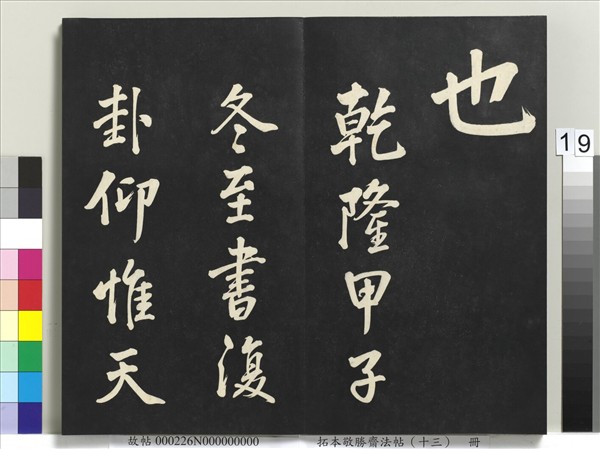 也
乾隆甲子
冬至書復
卦仰惟天
19
故帖 000226N000000000 拓本敬勝齋法帖（十三） 冊